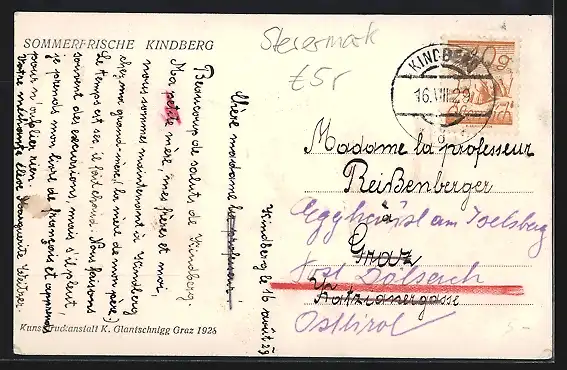 SOMMERFRISCHE KINDBERG
Steiermark
KINDBERG
16.VIII.29
Kindberg le 16 août 29
Chère madame la professeur!
Beaucoup de saluts de Kindberg.
Ma petite mère, mes frères et moi,
nous sommes maintenant à Kindberg
chez ma grand-mère (la mère de mon père)
Le temps est sec, il fait chaud. Nous faisons
souvent des excursions, mais s'il pleut,
je prends mon livre de français et apprends
pour n'oublier rien.
Votre méchante élève Marguerite
Madame la professeur
Reißenberger
à
Egghäusl am Iselsberg
Graz
Post Dölsach
Katzianergasse
Osttirol
Kunstdruckanstalt K. Glantschnigg Graz 1928